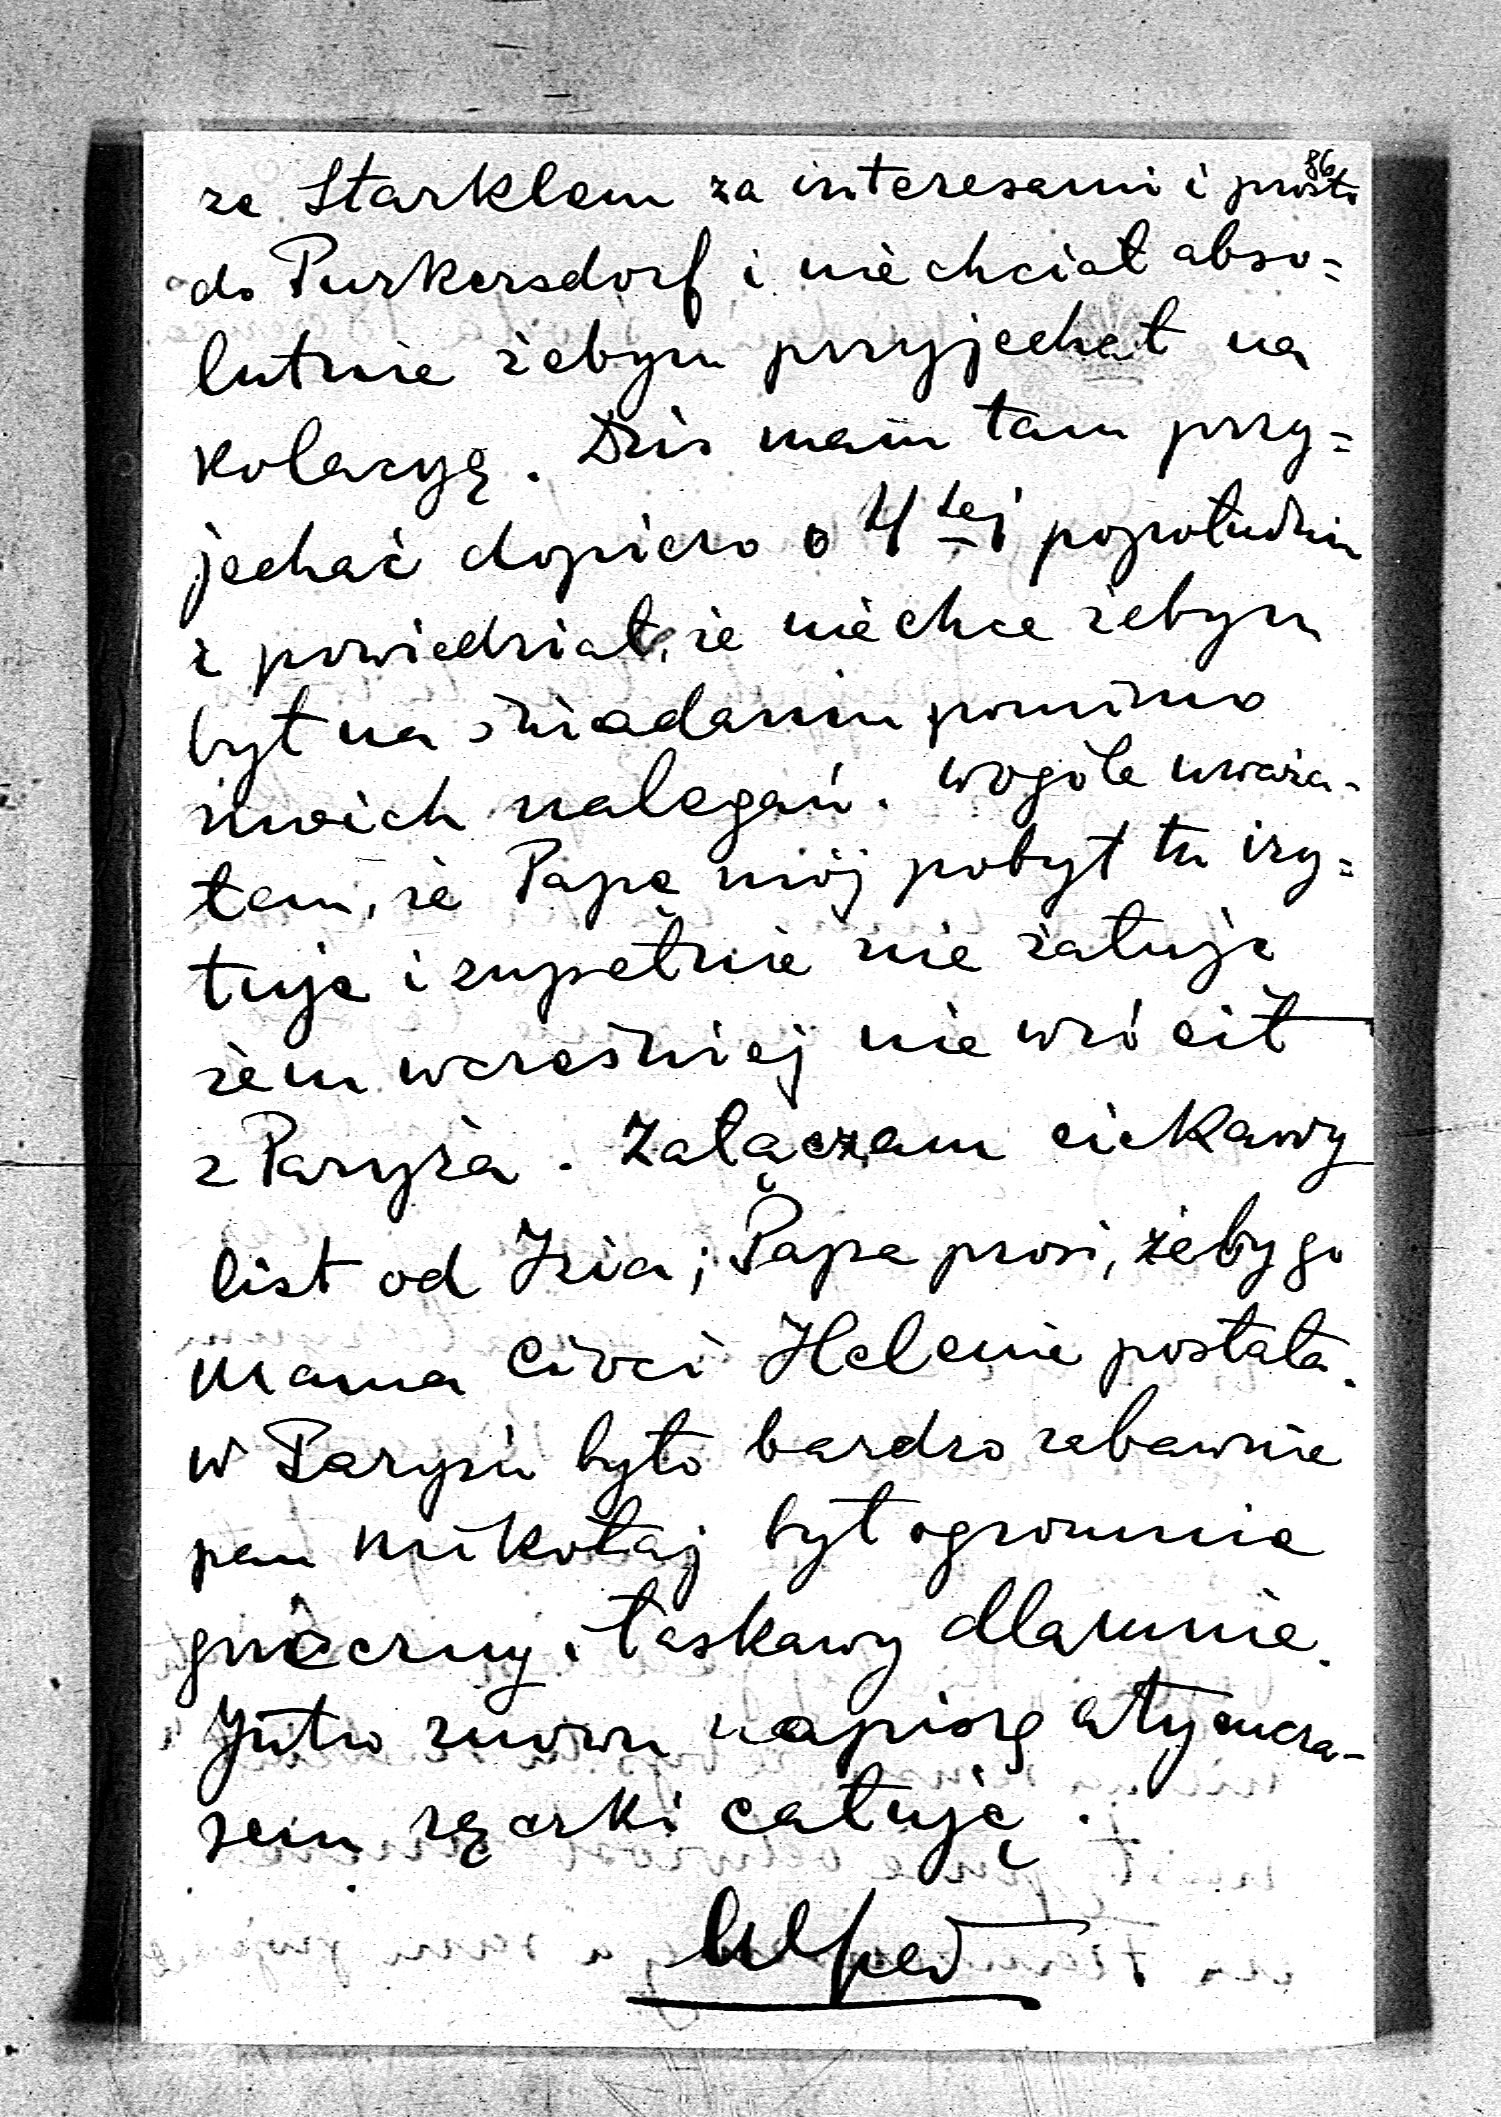 86
ze Starklem za interesami i prosto
do Purkersdorf i niechciał abso=
lutnie żebym przyjechał na
kolacyę. Dziś mam tam przy=
jechać dopiero o 4tej popołudniu
i powiedział, że niechce żebym
był na śniadaniu pomimo
moich nalegań. Wogóle uważa-
łem, że Papę mój pobyt tu iry=
tuje i zupełnie nie żałuję
żem wcześniej nie wrócił
z Paryża. Załączam ciekawy
list od Izia; Papa prosi, żeby go
Mama Cioci Helenie posłała.
W Paryżu było bardzo zabawnie
pan Mikołaj był ogromnie
grzeczny i łaskawy dlamnie.
Jutro znowu napiszę a tymcza-
sem rączki całuję.
Alfred